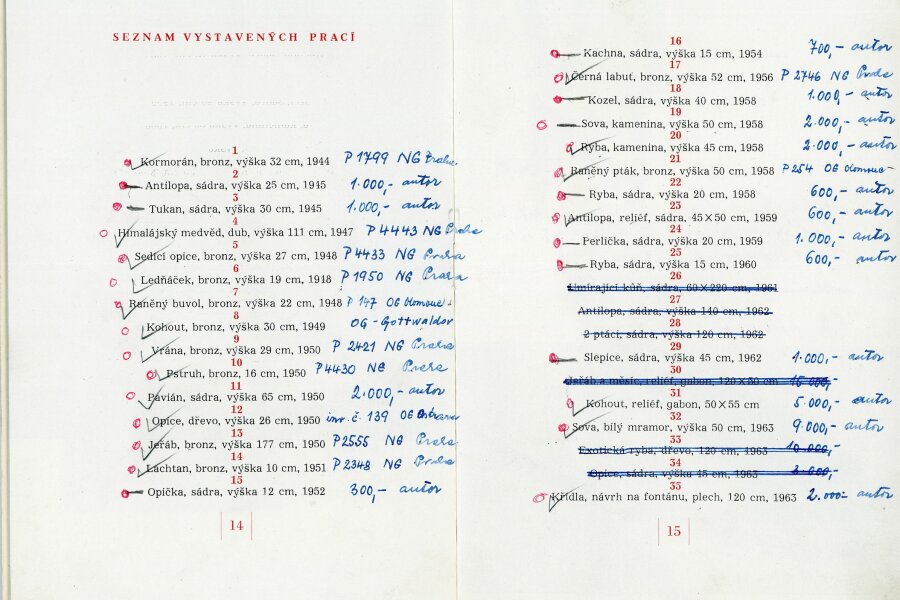 SEZNAM VYSTAVENÝCH PRACÍ
1
Kormorán, bronz, výška 32 cm, 1944 P 1799 NG Praha
2
Antilopa, sádra, výška 25 cm, 1945 1.000,- autor
3
Tukan, sádra, výška 30 cm, 1945 1.000,- autor
4
Himalájský medvěd, dub, výška 111 cm, 1947 P 4443 NG Praha
5
Sedící opice, bronz, výška 27 cm, 1948 P 4433 NG Praha
6
Ledňáček, bronz, výška 19 cm, 1948 P 1950 NG Praha
7
Raněný buvol, bronz, výška 22 cm, 1948 P 147 OG Olomouc
8
Kohout, bronz, výška 30 cm, 1949 OG - Gottwaldov
9
Vrána, bronz, výška 29 cm, 1950 P 2421 NG Praha
10
Pstruh, bronz, 16 cm, 1950 P 4430 NG Praha
11
Pavián, sádra, výška 65 cm, 1950 2.000,- autor
12
Opice, dřevo, výška 26 cm, 1950 inv. č. 139 OG Ostrava
13
Jeřáb, bronz, výška 177 cm, 1950 P 2555 NG Praha
14
Lachtan, bronz, výška 10 cm, 1951 P 2348 NG Praha
15
Opička, sádra, výška 12 cm, 1952 300,- autor
14
16
Kachna, sádra, výška 15 cm, 1954 700,- autor
17
Černá labuť, bronz, výška 52 cm, 1956 P 2746 NG Praha
18
Kozel, sádra, výška 40 cm, 1958 1.000,- autor
19
Sova, kamenina, výška 50 cm, 1958 2.000,- autor
20
Ryba, kamenina, výška 45 cm, 1958 2.000,- autor
21
Raněný pták, bronz, výška 50 cm, 1958 P 254 OG Olomouc
22
Ryba, sádra, výška 20 cm, 1958 600,- autor
23
Antilopa, reliéf, sádra, 45×50 cm, 1959 600,- autor
24
Perlička, sádra, výška 20 cm, 1959 1.000,- autor
25
Ryba, sádra, výška 15 cm, 1960 600,- autor
26
Umírající kůň, sádra, 60×220 cm, 1961
27
Antilopa, sádra, výška 140 cm, 1962
28
2 ptáci, sádra, výška 120 cm, 1962
29
Slepice, sádra, výška 45 cm, 1962 1.000,- autor
30
Jeřáb a měsíc, reliéf, gabon, 120×80 cm 15 000,-
31
Kohout, reliéf, gabon, 50×55 cm 5.000,- autor
32
Sova, bílý mramor, výška 50 cm, 1963 9.000,- autor
33
Exotická ryba, dřevo, 120 cm, 1963 10.000,-
34
Opice, sádra, výška 45 cm, 1963
35
Křídla, návrh na fontánu, plech, 120 cm, 1963 2.000- autor
15